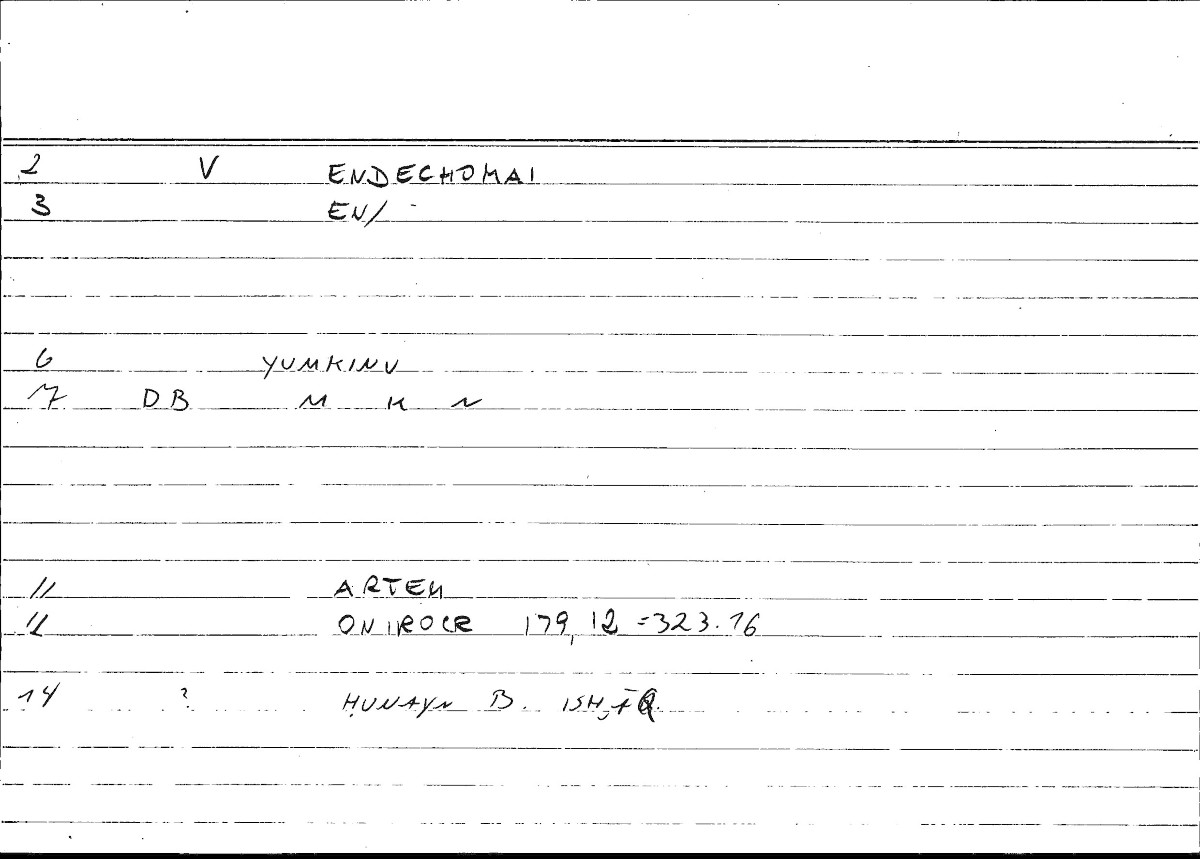 2 V ENDECHOMAI
3 EN/
6 YUMKINU
7 DB M K N
11 ARTEM
12 ONIROCR 179,12 =323.16
14 ? ḤUNAYN B. ISḤĀQ